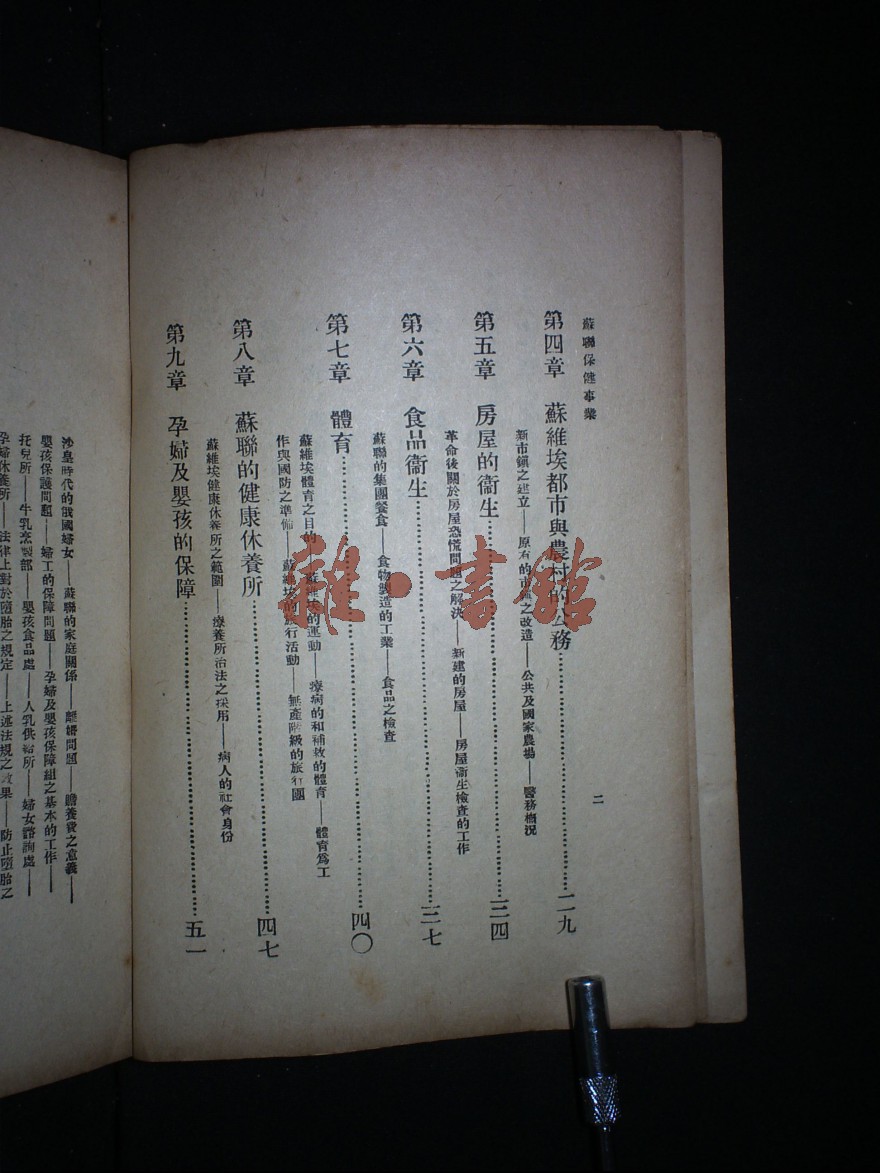 蘇聯保健事業
二
第四章 蘇維埃都市與農村的公務……二九
新市鎮之建立——原有的市鎮之改造——公共及國家農場——醫務概況
第五章 房屋的衞生……三四
革命後關於房屋恐慌問題之解決——新建的房屋——房屋衞生檢查的工作
第六章 食品衞生……三七
蘇聯的集團餐食——食物製造的工業——食品之檢查
第七章 體育……四〇
蘇維埃體育之目的——蘇維埃的運動——療病的和補救的體育——體育爲工
作與國防之準備——蘇維埃的旅行活動——無產階級的旅行團
第八章 蘇聯的健康休養所……四七
蘇維埃健康休養所之範圍——療養所治法之採用——病人的社會身份
第九章 孕婦及嬰孩的保障……五一
沙皇時代的俄國婦女——蘇聯的家庭關係——離婚問題——贍養費之意義——
嬰孩保護問題——婦工的保障問題——孕婦及嬰孩保障組之基本的工作——
托兒所——牛乳烹製部——嬰孩食品處——人乳供給所——婦女諮詢處——
孕婦休養所——法律上對於墮胎之規定——上述法規之效果——防止墮胎之
雜·書館